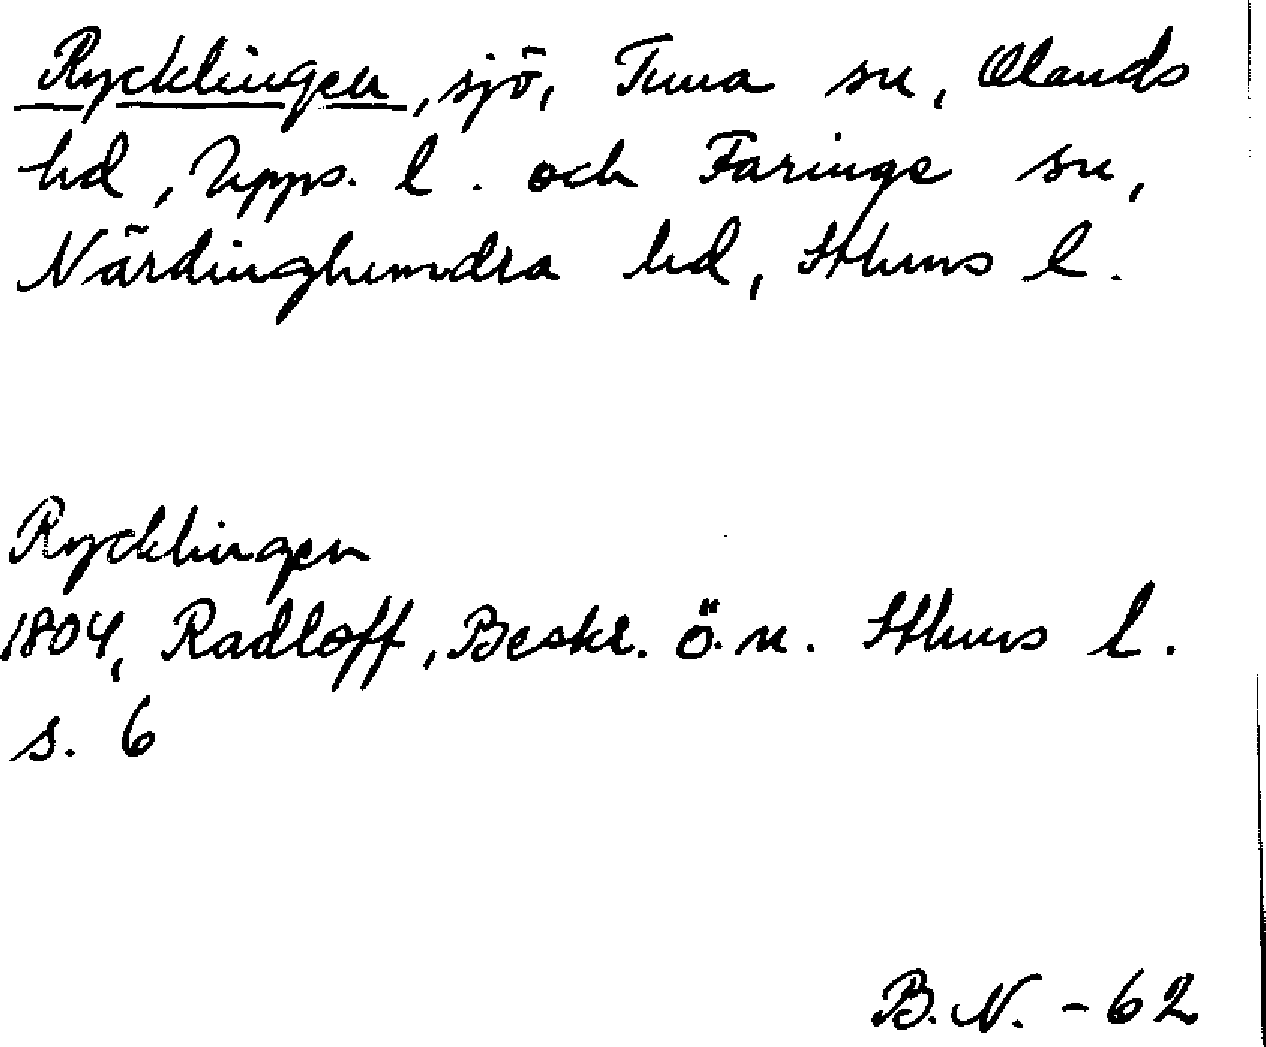 Rycklingen, sjö, Tuna sn, Olands
hd, Upps. l. och Faringe sn,
Närdinghundra hd, Sthms l.
Rycklingen
1804, Radloff, Beskr. ö. n. Sthms l.
s. 6
B. N. - 62